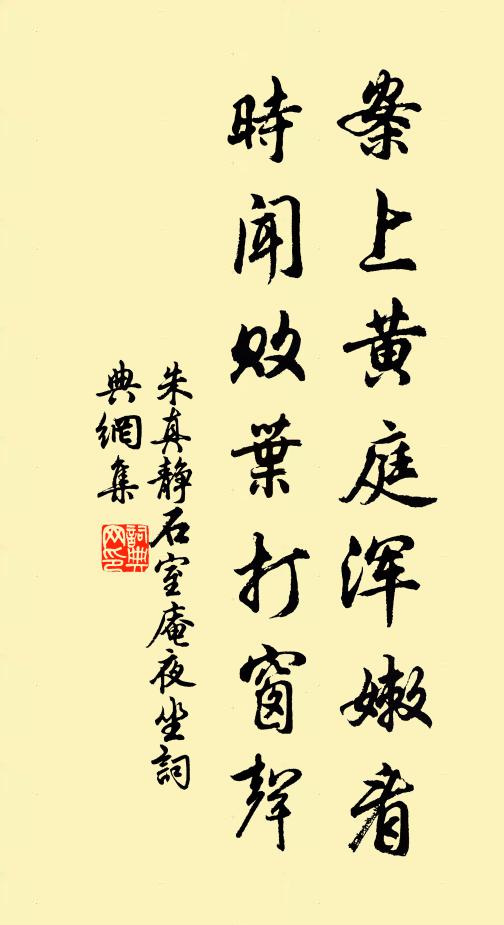 案上黄庭渾嫩看
時聞敗葉打窗聲
朱真静石室庵夜坐詞
典網集
詞典
网印